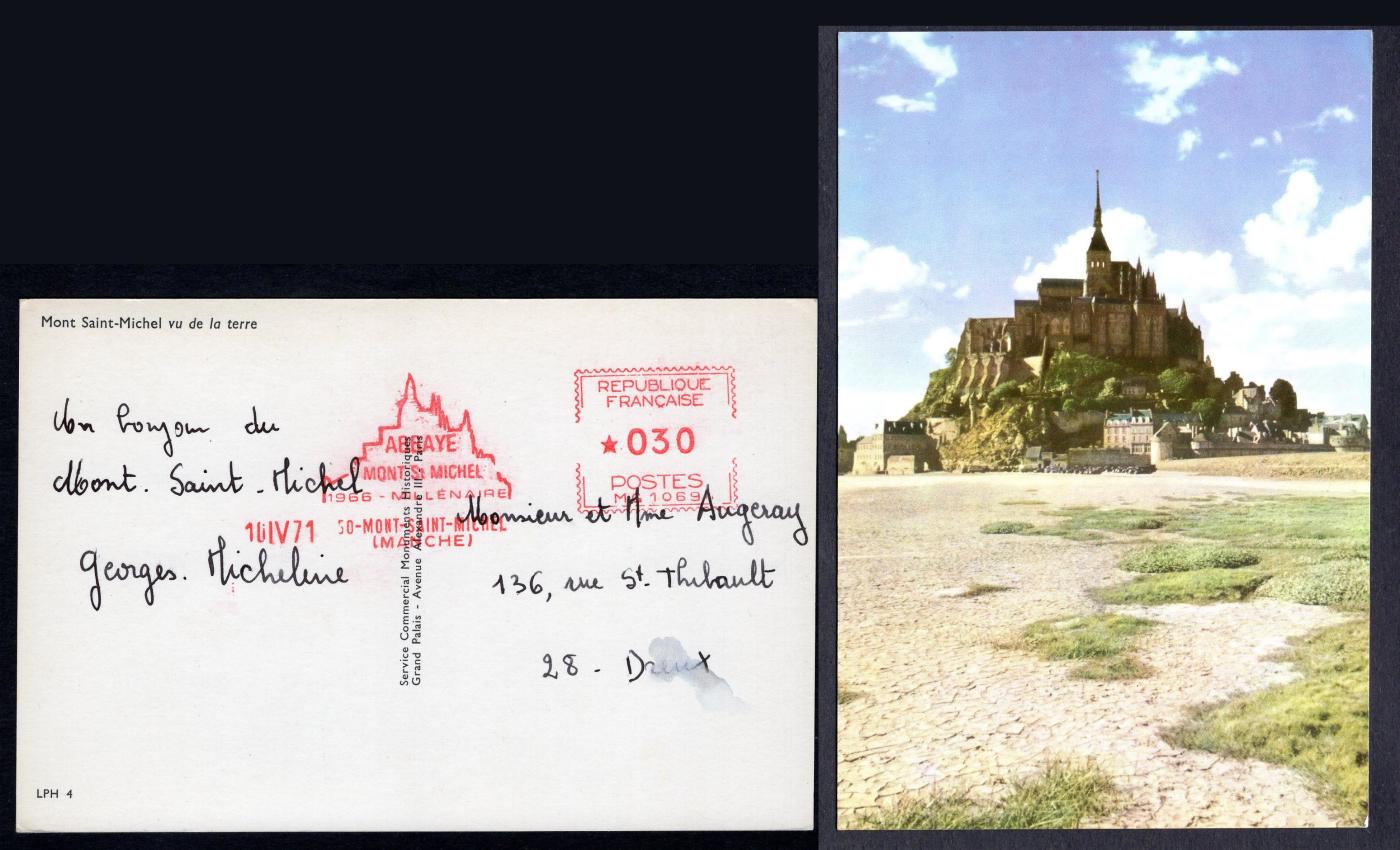 Mont Saint-Michel vu de la terre
Un bonjour du
Mont. Saint-Michel
Georges. Micheline
ABBAYE
MONT St MICHEL
1966 - MILLÉNAIRE
10 IV 71
50-MONT-SAINT-MICHEL
(MANCHE)
REPUBLIQUE
FRANÇAISE
★030
POSTES
Service Commercial Monuments Historiques
Grand Palais - Avenue Alexandre III - Paris
Monsieur et Mme Augeray
136, rue St. Thibault
28 - Dreux
LPH 4